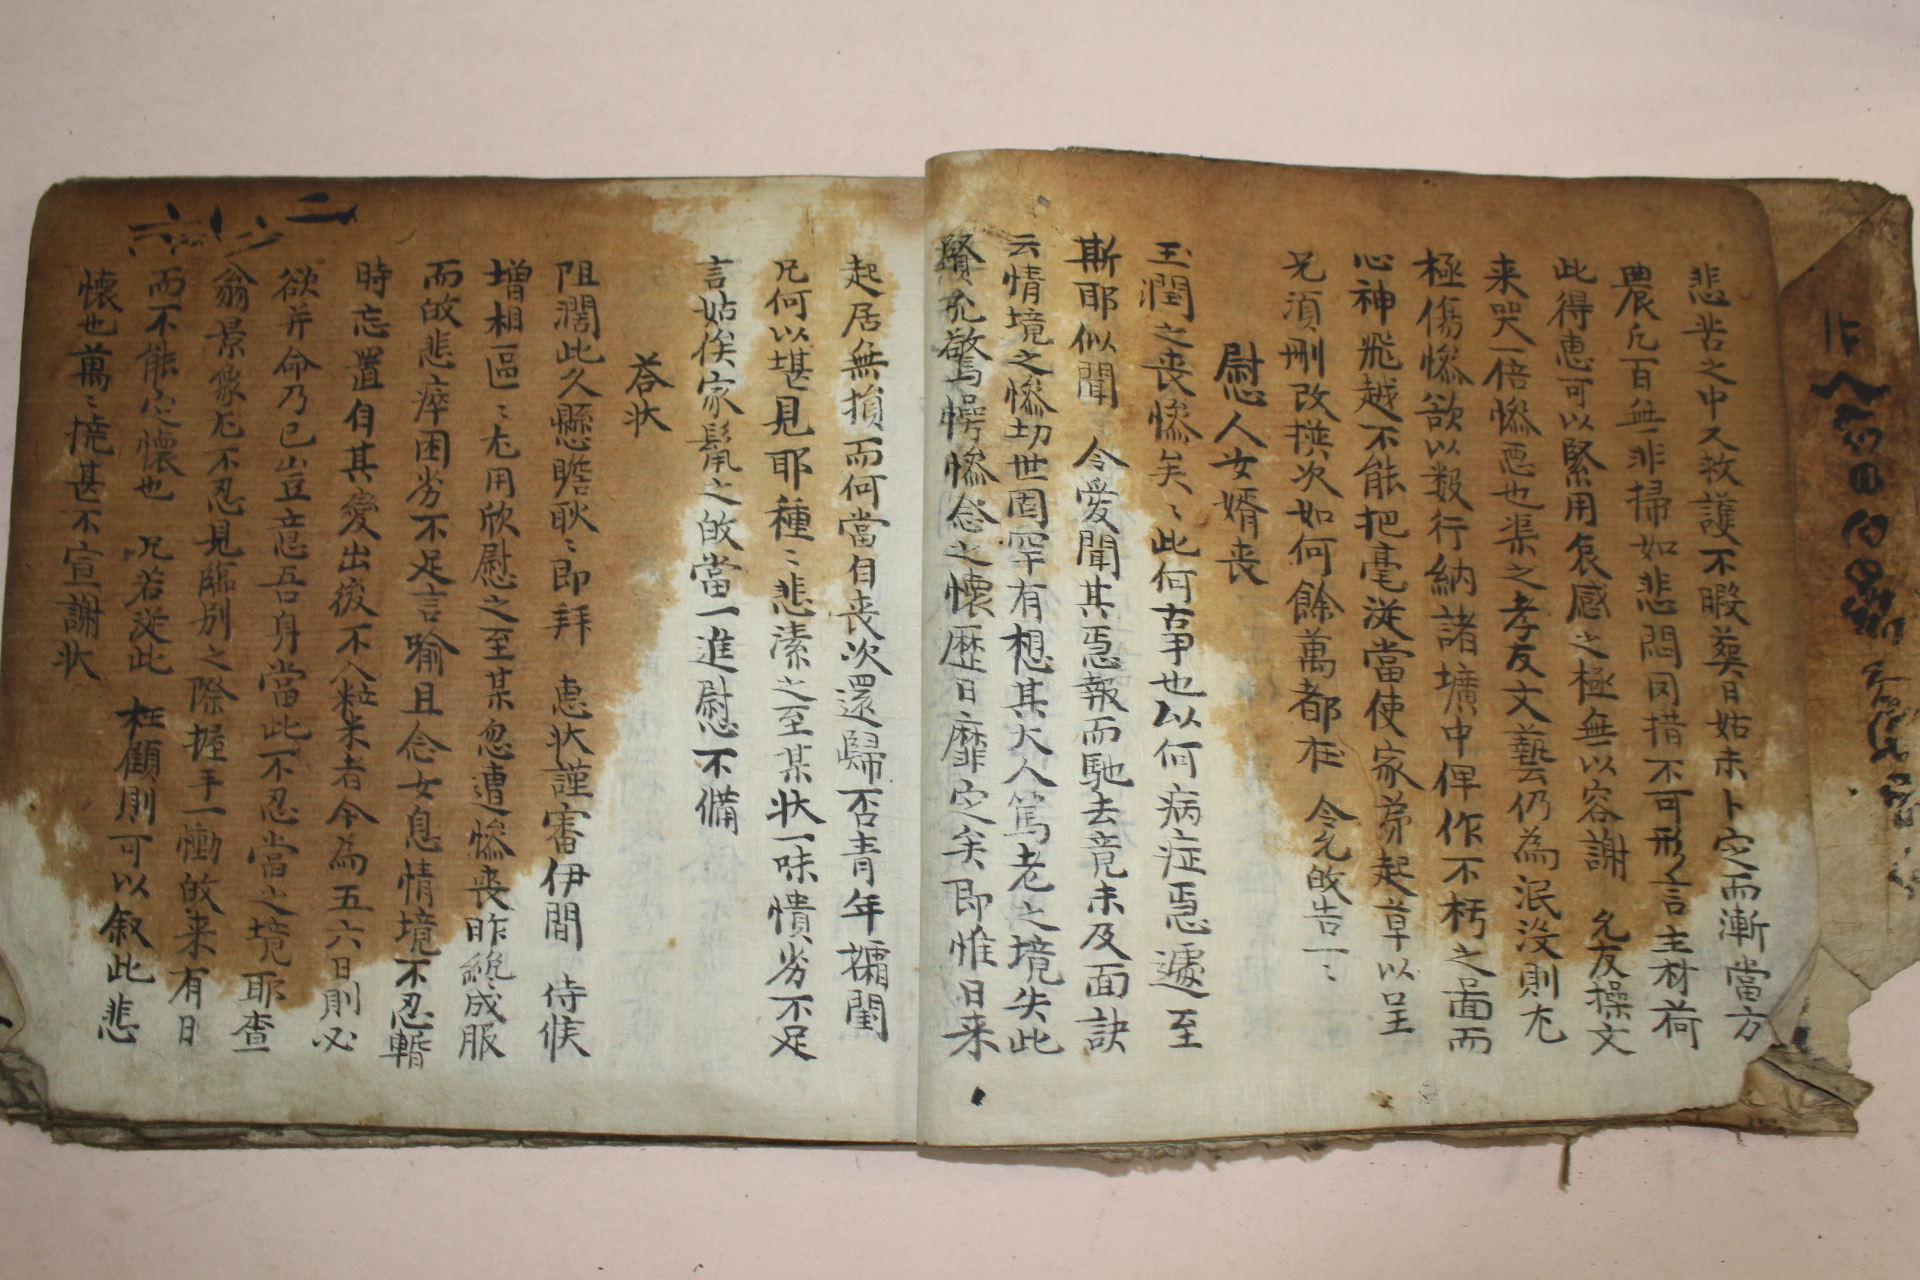 悲苦之中又救護不暇葬日姑未卜定而漸當方
農凡百無非掃如悲悶罔措不可形言主材荷
此得惠可以緊用哀感之極無以容謝 允友操文
来哭一倍慘悪也渠之孝友文藝云仍為泯没則尤
極傷慘欲以數行納諸壙中俾作不朽之啚而
心神飛越不能把毫從當使家弟起草以呈
兄須刪改撰次如何餘萬都在 令允的告一ミ
慰人女婿喪
玉潤之喪慘矣ミ此何事也以何病症𢙣遽至
斯耶似聞 令愛聞其𢙣報而馳去竟未及面訣
云情境之慘切世固罕有想其大人篤老之境失此
賢允驚愕慘念之懷歴日靡定矣即惟日来
起居無損而何當自喪次還歸否青年孀閨
兄何以堪見耶種ミ悲溸之至某状一味憒劣不足
言姑俟家髴之的當一進慰不備
荅状
阻濶此久懸瞻耿ミ即拜 惠状謹審伊間 侍候
增相區ミ尤用欣慰之至某忽遭慘喪昨纔成服
而的悲瘁困劣不足言喻且念女息情境不忍暫
時忘置自其變出後不入粒米者今為五六日則必
欲并命乃已豈意吾身當此不忍當之境耶查
翁景像尤不忍見臨别之際握手一慟的来有日
而不能定懷也 兄若從此 枉顧則可以叙此悲
懷也萬ミ撓甚不宣謝状